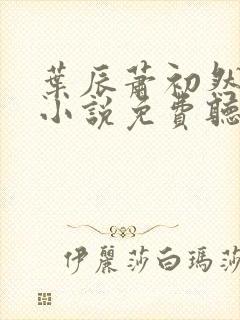 葉辰蕭初然
小說免費聽
伊麗莎白瑪莎